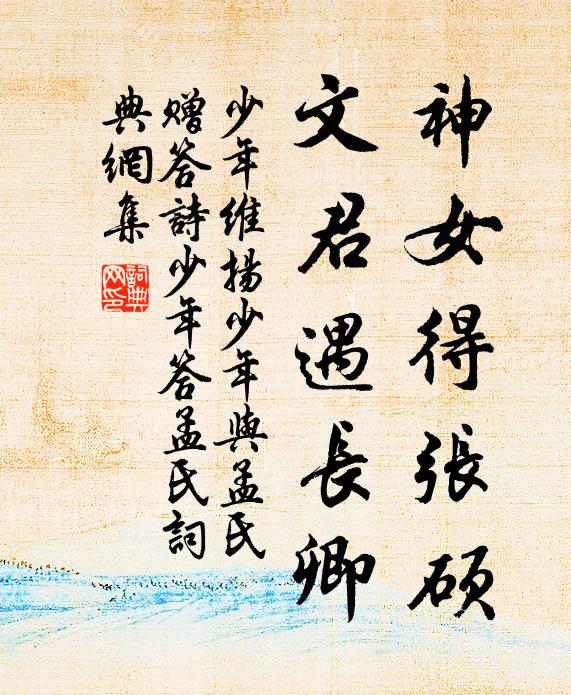 神女得張碩
文君遇長卿
少年維揚少年與孟氏
贈答詩少年答孟氏詞
典網集
詞典網印